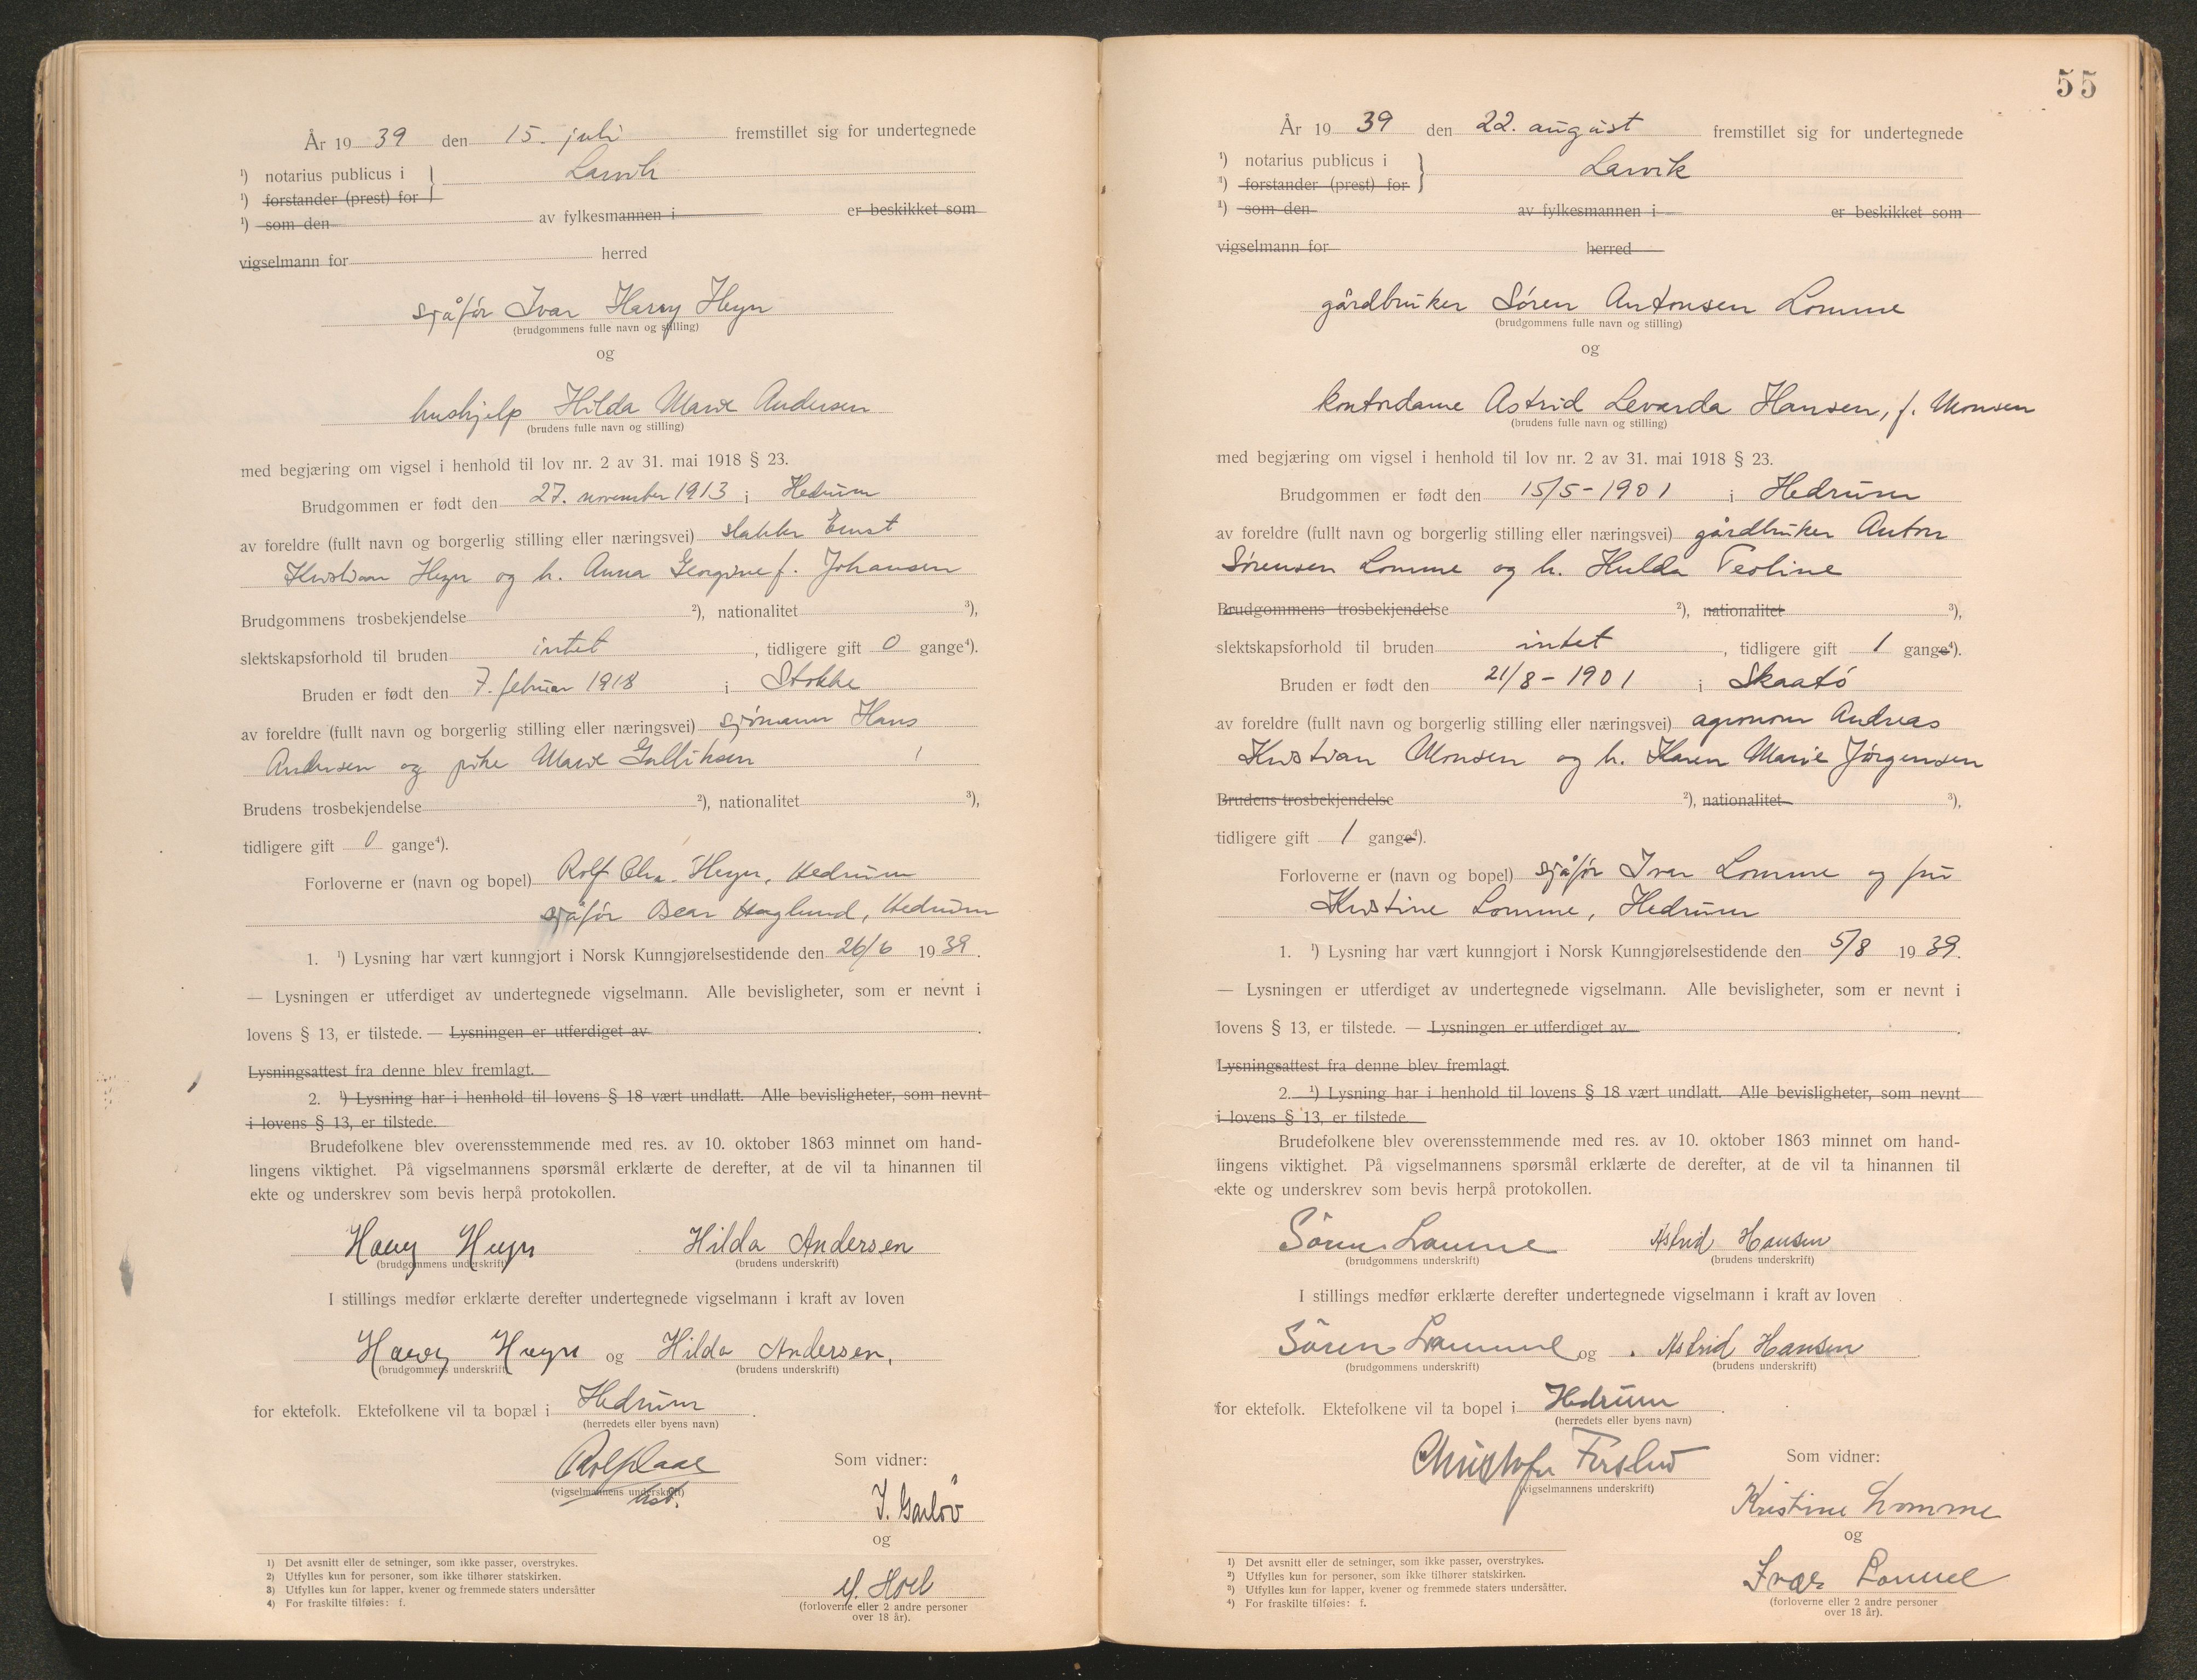 År 19 39 den 15. juli fremstillet sig for undertegnede
¹) notarius publicus i } Larvik
¹) forstander (prest) for
¹) som den av fylkesmannen i er beskikket som
vigselmann for herred
sjåfør Ivar Harry Heyn
(brudgommens fulle navn og stilling)
og
hushjelp Hilda Marie Andersen
(brudens fulle navn og stilling)
med begjæring om vigsel i henhold til lov nr. 2 av 31. mai 1918 § 23.
Brudgommen er født den 27. november 1913 i Hedrum
av foreldre (fullt navn og borgerlig stilling eller næringsvei) slakter Ernst
Kristian Heyn og h. Anna Georgine f. Johansen
Brudgommens trosbekjendelse ²), nationalitet ³),
slektskapsforhold til bruden intet , tidligere gift 0 gange⁴).
Bruden er født den 7. februar 1918 i Stokke
av foreldre (fullt navn og borgerlig stilling eller næringsvei) sjømann Hans
Andersen og pike Marie Gulliksen
Brudens trosbekjendelse ²), nationalitet ³),
tidligere gift 0 gange⁴).
Forloverne er (navn og bopel) Rolf Chr. Heyn, Hedrum
sjåfør Oscar Haglund, Hedrum
1. ¹) Lysning har vært kunngjort i Norsk Kunngjørelsestidende den 26/6 1939.
— Lysningen er utferdiget av undertegnede vigselmann. Alle bevisligheter, som er nevnt i
lovens § 13, er tilstede. — Lysningen er utferdiget av .
Lysningsattest fra denne blev fremlagt.
2. ¹) Lysning har i henhold til lovens § 18 vært undlatt. Alle bevisligheter, som nevnt
i lovens § 13, er tilstede.
Brudefolkene blev overensstemmende med res. av 10. oktober 1863 minnet om hand-
lingens viktighet. På vigselmannens spørsmål erklærte de derefter, at de vil ta hinannen til
ekte og underskrev som bevis herpå protokollen.
Harry Heyn Hilda Andersen
(brudgommens underskrift) (brudens underskrift)
I stillings medfør erklærte derefter undertegnede vigselmann i kraft av loven
Harry Heyn og Hilda Andersen,
(brudgommens underskrift) (brudens underskrift)
for ektefolk. Ektefolkene vil ta bopæl i Hedrum .
(herredets eller byens navn)
Som vidner:
(vigselmannens underskrift)
og
(forloverne eller 2 andre personer
over 18 år).
1) Det avsnitt eller de setninger, som ikke passer, overstrykes.
2) Utfylles kun for personer, som ikke tilhører statskirken.
3) Utfylles kun for lapper, kvener og fremmede staters undersåtter
4) For fraskilte tilføies: f.
55
År 19 39 den 22. august fremstillet sig for undertegnede
¹) notarius publicus i } Larvik
¹) forstander (prest) for
¹) som den av fylkesmannen i er beskikket som
vigselmann for herred
gårdbruker Søren Antonsen Lomme
(brudgommens fulle navn og stilling)
og
kontordame Astrid Levarda Hansen, f. Monsen
(brudens fulle navn og stilling)
med begjæring om vigsel i henhold til lov nr. 2 av 31. mai 1918 § 23.
Brudgommen er født den 15/5-1901 i Hedrum
av foreldre (fullt navn og borgerlig stilling eller næringsvei) gårdbruker Anton
Sørensen Lomme og h. Hulda Teoline
Brudgommens trosbekjendelse ²), nationalitet ³),
slektskapsforhold til bruden intet , tidligere gift 1 gange⁴).
Bruden er født den 21/8-1901 i Skaatø
av foreldre (fullt navn og borgerlig stilling eller næringsvei) agronom Andreas
Kristian Monsen og h. Karen Marie Jørgensen
Brudens trosbekjendelse ²), nationalitet ³),
tidligere gift 1 gange⁴).
Forloverne er (navn og bopel) sjåfør Ivar Lomme og fru
Kristine Lomme, Hedrum
1. ¹) Lysning har vært kunngjort i Norsk Kunngjørelsestidende den 5/8 1939.
— Lysningen er utferdiget av undertegnede vigselmann. Alle bevisligheter, som er nevnt i
lovens § 13, er tilstede. — Lysningen er utferdiget av .
Lysningsattest fra denne blev fremlagt.
2. ¹) Lysning har i henhold til lovens § 18 vært undlatt. Alle bevisligheter, som nevnt
i lovens § 13, er tilstede.
Brudefolkene blev overensstemmende med res. av 10. oktober 1863 minnet om hand-
lingens viktighet. På vigselmannens spørsmål erklærte de derefter, at de vil ta hinannen til
ekte og underskrev som bevis herpå protokollen.
Søren Lomme Astrid Hansen
(brudgommens underskrift) (brudens underskrift)
I stillings medfør erklærte derefter undertegnede vigselmann i kraft av loven
Søren Lomme og Astrid Hansen
(brudgommens underskrift) (brudens underskrift)
for ektefolk. Ektefolkene vil ta bopel i Hedrum .
(herredets eller byens navn)
Som vidner:
(vigselmannens underskrift)
Kristine Lomme
og
Ivar Lomme
(forloverne eller 2 andre personer
over 18 år).
¹) Det avsnitt eller de setninger, som ikke passer, overstrykes.
²) Utfylles kun for personer, som ikke tilhører statskirken.
³) Utfylles kun for lapper, kvener og fremmede staters undersåtter.
⁴) For fraskilte tilføies: f.